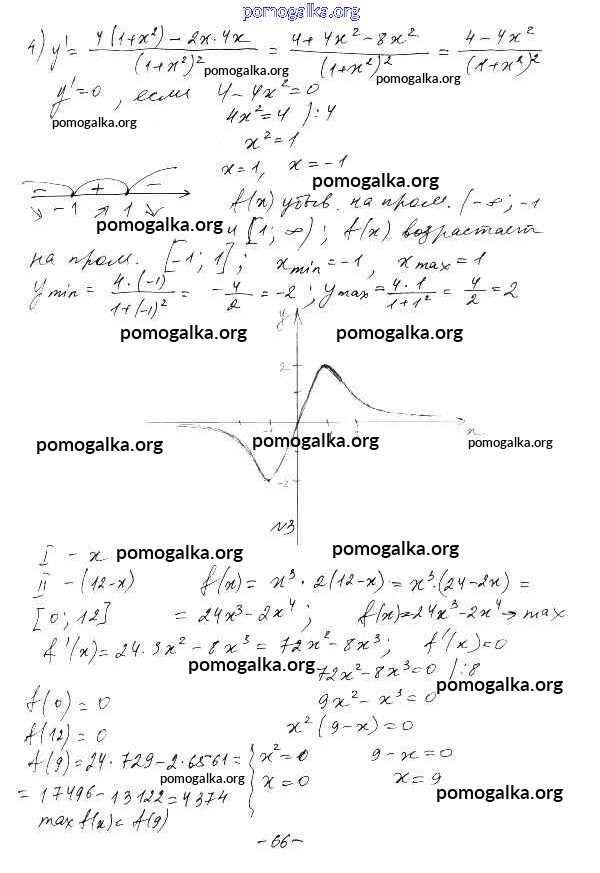 pomogalka.org
4) y' = 4(1+x²) - 2x·4x / (1+x²)² = 4+4x²-8x² / (1+x²)² = 4-4x² / (1+x²)²
pomogalka.org pomogalka.org
y'=0, если 4-4x²=0
pomogalka.org 4x²=4 | :4
x²=1
x=1, x=-1
pomogalka.org
- + -
-1 1 f(x) убыв. на пром. (-∞; -1
pomogalka.org и [1; ∞); f(x) возрастает
на пром. [-1; 1]; xmin=-1, xmax=1
ymin = 4·(-1) / 1+(-1)² = -4/2 = -2; ymax = 4·1 / 1+1² = 4/2 = 2
y
pomogalka.org pomogalka.org
2
x
pomogalka.org pomogalka.org pomogalka.org
-2
N3
I - x pomogalka.org pomogalka.org
II - (12-x) f(x) = x³ · 2(12-x) = x³·(24-2x) =
[0; 12] = 24x³-2x⁴; f(x)=24x³-2x⁴→max
f'(x) = 24·3x²-8x³ = 72x²-8x³; f'(x)=0
pomogalka.org 72x²-8x³=0 |:8
pomogalka.org
f(0)=0 9x²-x³=0
f(12)=0 x²(9-x)=0
f(9)=24·729-2·6561= x²=0 9-x=0
pomogalka.org
=17496-13122=4374 x=0 x=9
pomogalka.org
max f(x)= f(9)
-66-